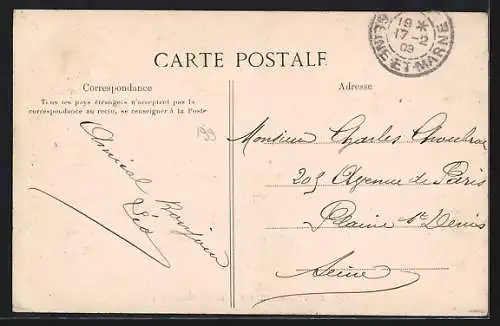 CARTE POSTALE
Correspondance
Tous les pays étrangers n'acceptent pas la
correspondance au recto, se renseigner à la Poste
Adresse
19 *
17-2
09
SEINE ET MARNE
93
Amical Bonjour
Léo
Monsieur Charles
209 Avenue de Paris
Plaine St Denis
Seine